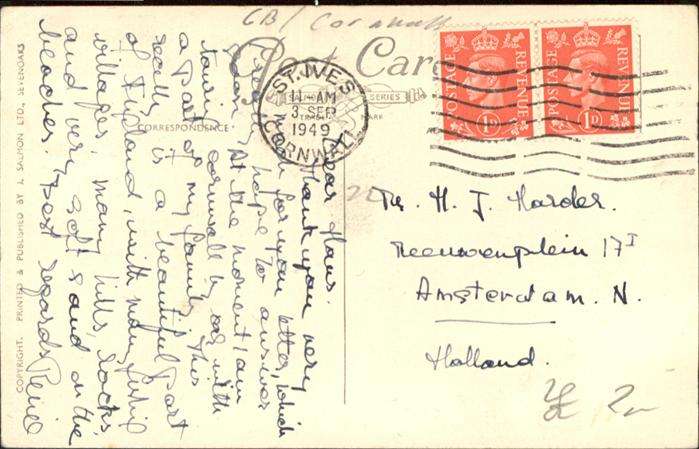 GB / Cornwall
Post Card
SALMON SERIES
TRADE MARK
CORRESPONDENCE
ST. IVES
11-AM
3 SEP
1949
CORNWALL
POSTAGE REVENUE
1D
POSTAGE REVENUE
1D
Dear Hans.
Thank you very
much for your letter, which
I hope to answer
soon. At the moment I am
touring Cornwall by car with
a part of my family. This
really is a beautiful part
of England, with many fishing
villages, many hills, rocks,
and very soft sand on the
beaches. Best regards
H. J. Harder.
17 I
Amsterdam. N.
Holland.
COPYRIGHT. PRINTED & PUBLISHED BY J. SALMON LTD., SEVENOAKS